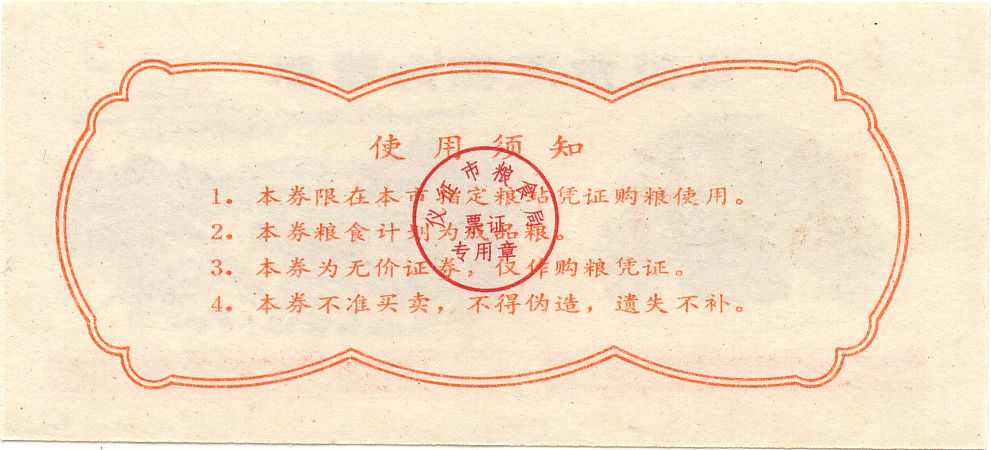 使用须知
1. 本券限在本市指定粮站凭证购粮使用。
2. 本券粮食计划为成品粮。
3. 本券为无价证券，仅作购粮凭证。
4. 本券不准买卖，不得伪造，遗失不补。
仪征市粮食局
票证
专用章